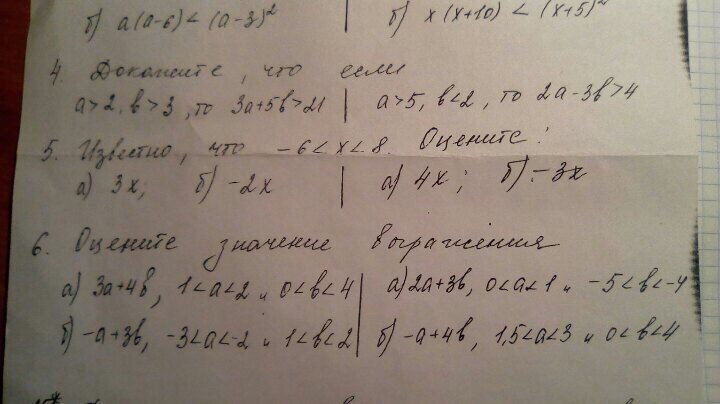 б) a(a-6) < (a-3)² | б) x(x+10) < (x+5)²
4. Докажите, что если
a>2, b>3, то 3a+5b>21 | a>5, b<2, то 2a-3b>4
5. Известно, что -6<x<8. Оцените:
а) 3x; б) -2x | а) 4x; б) -3x
6. Оцените значение выражения
а) 3a+4b, 1<a<2 и 0<b<4 | а) 2a+3b, 0<a<1 и -5<b<-4
б) -a+3b, -3<a<-2 и 1<b<2 | б) -a+4b, 1,5<a<3 и 0<b<4